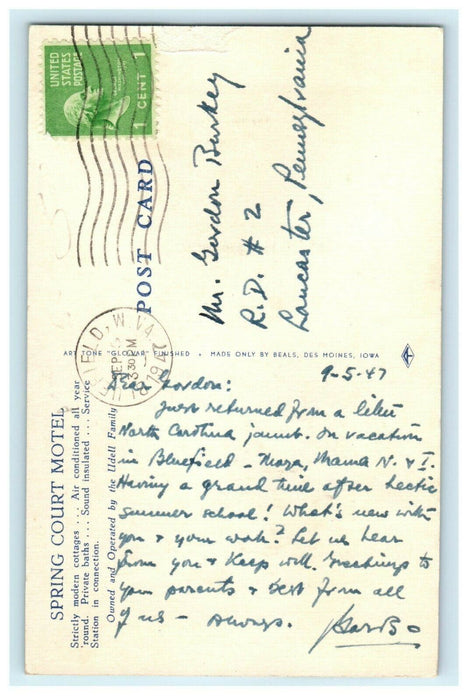 UNITED
STATES
POSTAGE
1 CENT 1
POST CARD
Mr. Gordon Burkey
R.D. # 2
Lancaster, Pennsylvania
FIELD, W. VA.
SEP
330 PM
1947
ART TONE "GLO-VAR" FINISHED • MADE ONLY BY BEALS, DES MOINES, IOWA
SPRING COURT MOTEL
Strictly modern cottages . . . Air conditioned all year
'round. Private baths . . . Sound insulated . . . Service
Station in connection.
Owned and Operated by the Udell Family
9-5-47
Dear Gordon:
Just returned from a
North Carolina jaunt. On vacation
in Bluefield - Mama N. & I.
Having a grand time after hectic
summer school! What's new with
you & your work? Let us hear
from you & keep well. Greetings to
your parents & best from all
of us - Always.